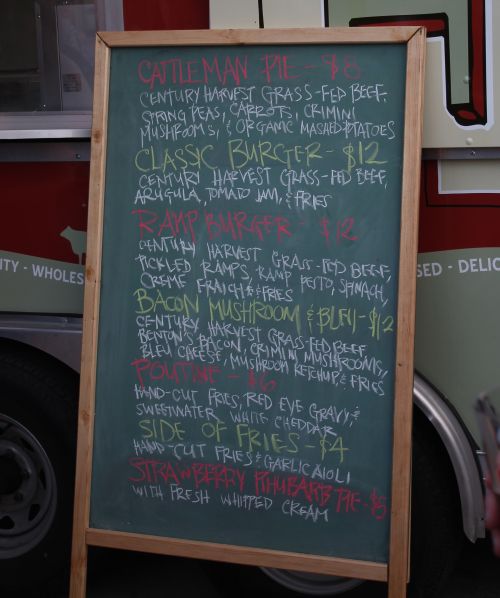 CATTLEMAN PIE - $8
CENTURY HARVEST GRASS-FED BEEF,
STRING PEAS, CARROTS, CRIMINI
MUSHROOMS, & ORGANIC MASHED POTATOES
CLASSIC BURGER - $12
CENTURY HARVEST GRASS-FED BEEF,
ARUGULA, TOMATO JAM, & FRIES
RAMP BURGER - $12
CENTURY HARVEST GRASS-FED BEEF,
PICKLED RAMPS, RAMP PESTO, SPINACH,
CREME FRAICHE & FRIES
BACON MUSHROOM & BLEU - $12
CENTURY HARVEST GRASS-FED BEEF
BENTON'S BACON, CRIMINI MUSHROOMS,
BLEU CHEESE, MUSHROOM KETCHUP, & FRIES
POUTINE - $6
HAND-CUT FRIES, RED EYE GRAVY, &
SWEETWATER WHITE CHEDDAR
SIDE OF FRIES - $4
HAND-CUT FRIES & GARLIC AIOLI
STRAWBERRY RHUBARB PIE - $5
WITH FRESH WHIPPED CREAM
ITY - WHOLES
SED - DELIC